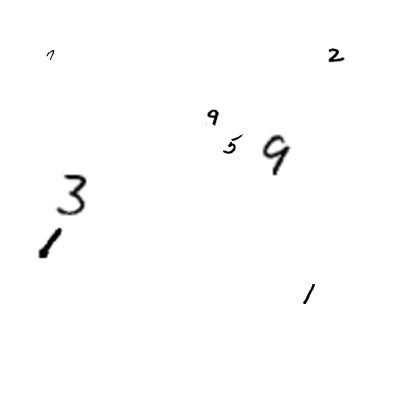 7 2
9
5 9
3
1
1